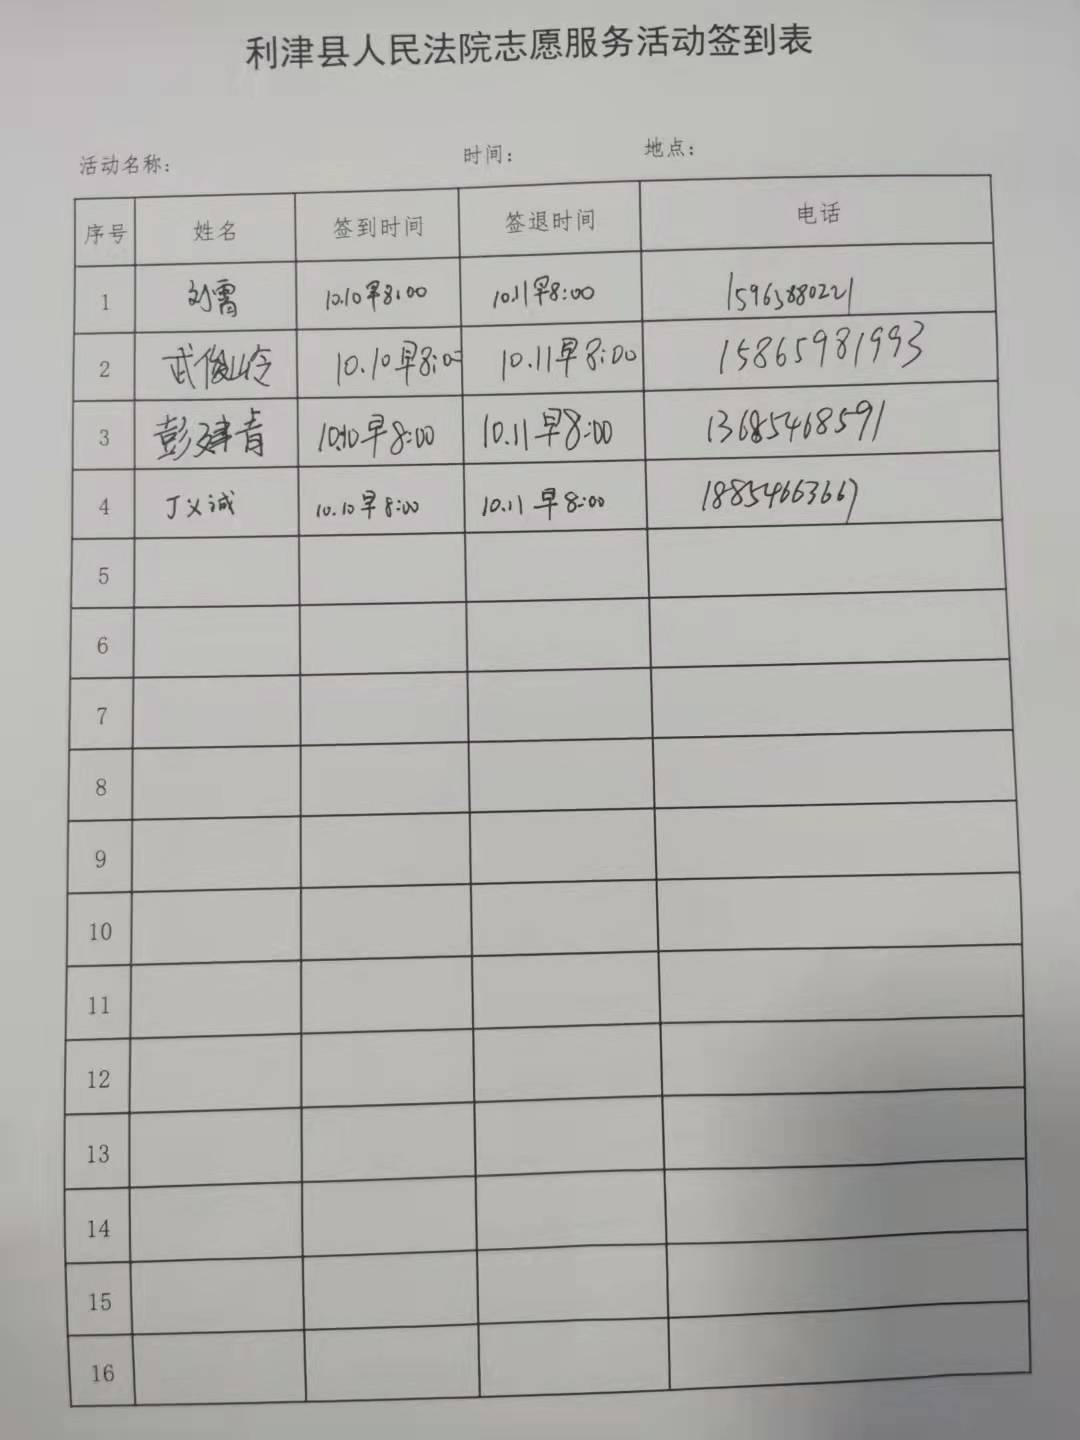 利津县人民法院志愿服务活动签到表
活动名称： 时间： 地点：
序号 姓名 签到时间 签退时间 电话
1 刘霄 10.10早8:00 10.11早8:00 15963880221
2 武俊岭 10.10早8:00 10.11早8:00 15865981993
3 彭建青 10.10早8:00 10.11早8:00 13685468591
4 丁义诚 10.10早8:00 10.11早8:00 18854663667
5
6
7
8
9
10
11
12
13
14
15
16